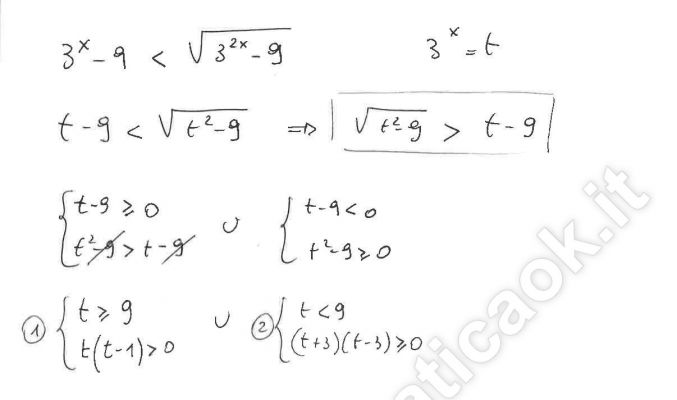 3^x - 9 < √(3^{2x} - 9)    3^x = t
t - 9 < √(t² - 9) ⇒ √(t² - 9) > t - 9
{ t - 9 ≥ 0    ∪    { t - 9 < 0
{ t² - 9 > t - 9    { t² - 9 ≥ 0
① { t ≥ 9    ∪    ② { t < 9
{ t(t - 1) > 0    { (t+3)(t-3) ≥ 0
aticaok.it